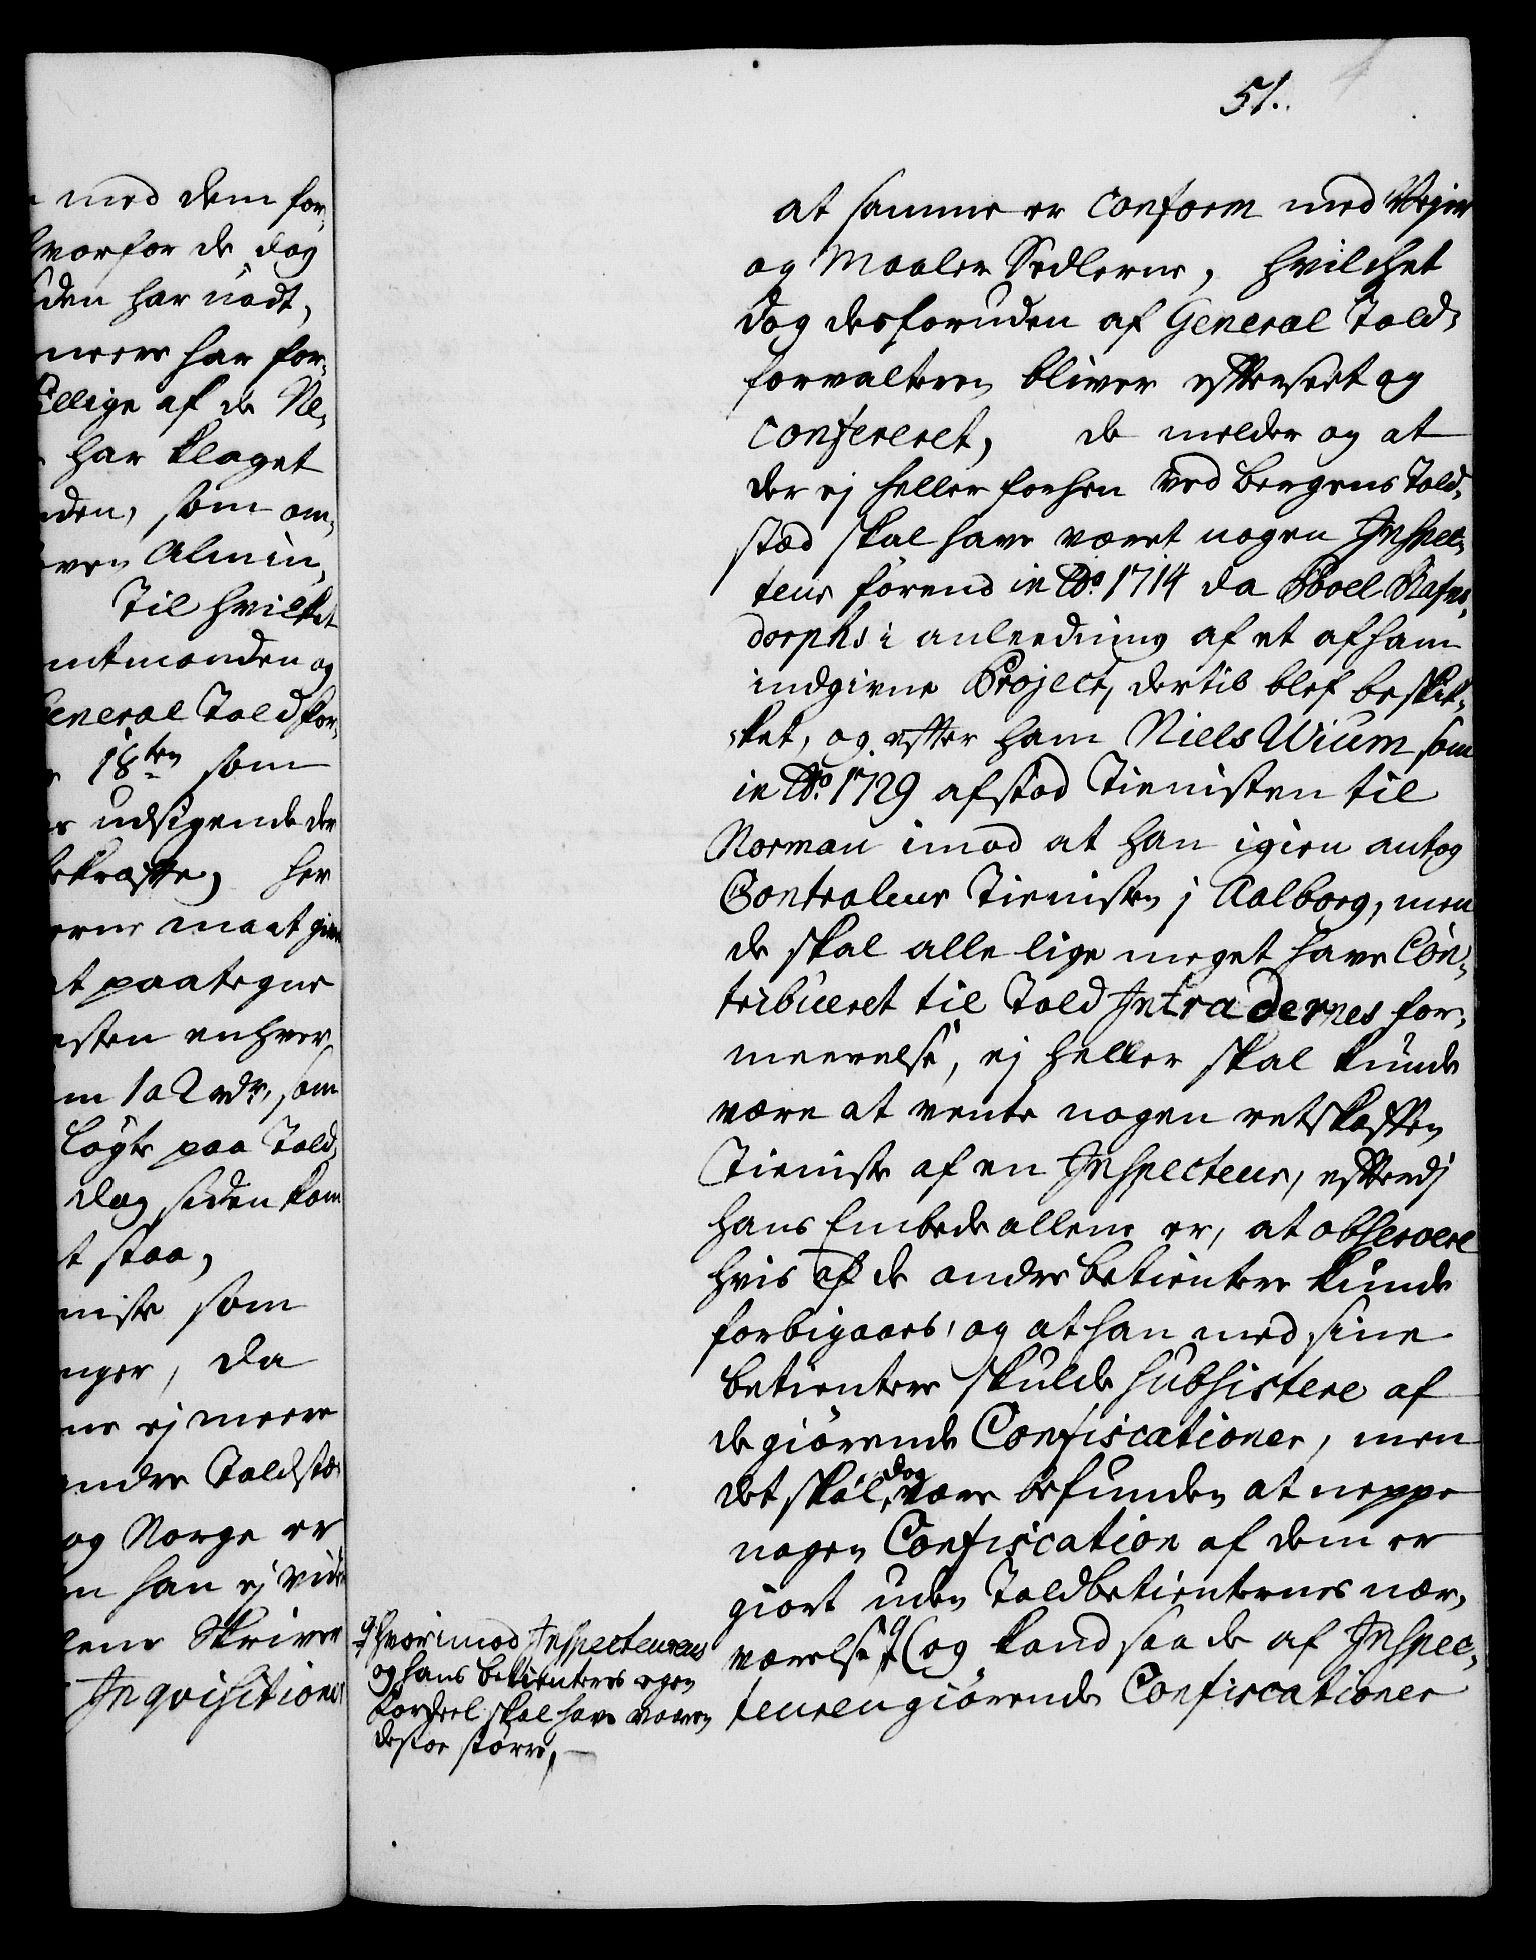 51.
med dem for,
hvorfor de dog
den har nødt,
meere har for,
illige af de Ne,
har klaget
den, som om,
Almin,
Til hvilket
mtmanden og
eneral Toldfor,
18ten som
udsigende der
kræffte, her
erne maat give
t paategne
sten enhver
m 1 a 2 rdr, som
løgte paa Told,
dog siden kom
t staa,
niste som
nger, da
ne ej meere
andre Toldstæ
og Norge er
n han ej vide
Skriver
Inqvisitioner
at samme er conform med Vejer
og Maaler Sedlerne, hvilchet
dog desforuden af General Told,
forvalteren bliver efterseet og
confereret, de melder og at
der ej heller forhen ved Bergens Told,
stæd skal have været nogen Inspec,
teur førend in Ao. 1714 da Poel Rafns,
dorphs i anleedning af et af ham
indgivne Project, dertil blef beskik,
,ket, og efter ham Niels Wium som
in Ao. 1729 afstod Tienisten til
Norman imod at han igien antog
Contraleur Tienisten j Aalborg, men
de skal alle lige meget have Con,
tribueret til Told Intradernes for,
meerelse, ej heller skal kunde
være at vente nogen retskaffen
Tieniste af en Inspecteur, efterdj
hans Embede allene er, at observere
hvis af de andre betientere kunde
forbigaaes, og at han med sine
betientere skulde subsistere af
de giørende Confiscationer, men
det skal dog være befunden at neppe
nogen Confiscation af dem er
giort uden Toldbetienternes nær,
værelse (og kand saa de af Inspec,
teuren giørende Confiscationer
hvorimod Inspecteurens
og hans betienteres egen
Fordeel skal have været
destoe større,